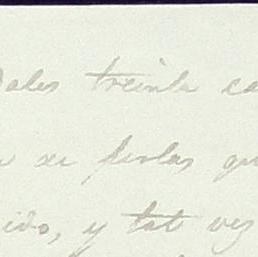 Dales treinta ca
se perlas qu
ido, y tal vez